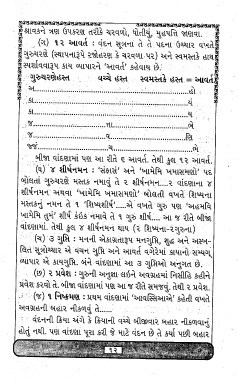 શ્રાવકને ત્રણ ઉપકરણ તરીકે ચરવળો, ધોતીયું, મુહપત્તિ જાણવા.
(ચ) ૧૨ આવર્ત : વંદન સૂત્રના તે તે પદના ઉચ્ચાર વખતે
ગુરુચરણે (સ્થાપનારૂપે રજોહરણ કે ચરવળા પર) અને સ્વમસ્તકે હાથ
સ્પર્શાવવારૂપ કાય વ્યાપારને 'આવર્ત' કહેવાય છે.
ગુરુચરણેહસ્ત વચ્ચે હસ્ત સ્વમસ્તકે હસ્ત = આવર્ત
અ હો
કા યં
કા ય
જ તા ભે
જ વ ણિ
જ્જં ચ ભે
બીજા વાંદણામાં પણ આ રીતે ૬ આવર્ત. તેથી કુલ ૧૨ આવર્ત.
(ઘ) ૪ શીર્ષનમન : 'સંફાસં' અને 'ખામેમિ ખમાસમણો' પદ
બોલતાં ગુરુચરણે મસ્તક નમાવવું તે ૨ શીર્ષનમન.... ૨ વાંદણાના ૪
શીર્ષનમન અથવા 'ખામેમિ ખમાસમણો' બોલતી વખતે શિષ્યના
મસ્તકનું નમન તે ૧ 'શિષ્યશીર્ષ'.....એ વખતે ગુરુ પણ 'અહમવિ
ખામેમિ તુમં' શીર્ષ કંઇક નમાવે તે ૧ ગુરુ શીર્ષ.... આ જ રીતે બીજા
વાંદણામાં. તેથી કુલ ૪ શીર્ષનમન થાય (૨ શિષ્યના-૨ ગુરુના)
(ચ) ૩ ગુપ્તિ : મનની એકાગ્રતારૂપ મનગુપ્તિ, શુદ્ધ અને અસ્ખ-
લિત સૂત્રોચ્ચાર એ વચન ગુપ્તિ અને આવર્ત વગેરેમાં કાયાનો સમ્યગ્
વ્યાપાર એ કાયગુપ્તિ. બંને વાંદણામાં આ ૩ ગુપ્તિઓ અનુગત છે.
(છ) ૨ પ્રવેશ : ગુરુની અનુજ્ઞા લઇને અવગ્રહમાં નિસીહિ કહીને
પ્રવેશ કરવો તે. બીજા વાંદણામાં પણ આ જ રીતે સમજવું. તેથી ૨ પ્રવેશ.
(જ) ૧ નિષ્ક્રમણ : પ્રથમ વાંદણામાં 'આવસ્સિઆએ' કહેતી વખતે
અવગ્રહની બહાર નીકળવું તે.....
વંદનની ક્રિયા અંગે કે ક્રિયાની વચ્ચે બીજીવાર બહાર નીકળવાનું
હોતું નથી. પણ વાંદણા પૂરા કરી જે માટે વંદન છે તે કર્યા પછી બહાર